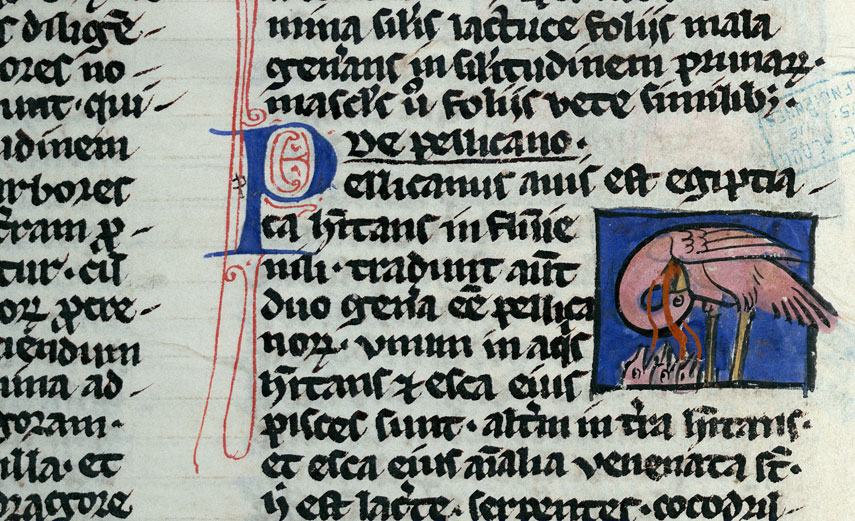 s diligē
ores no
unt· qui
udinem
arbores
tur· cū
orꝝ ꝓcre
ciēdum
nina ad
goram·
illa· et
dragore
mina silis lactuce foliis mala
gen̄ans in silitudinem prunarꝝ·
mascl̄s ů foliis bete similib;·
De pellicano·
Pellicanus auis est egiptia
ca hītans in flūīe
nili· tradunt aūt
duo gen̄a eē pellica
norꝝ· vnum in aqͥs
hītans ⁊ esca eius
pisces sunt· alt̄m in t̄ra hītans·
et esca eius aīalia venenata st̄·
est lac̄te· serpentes· cocodril